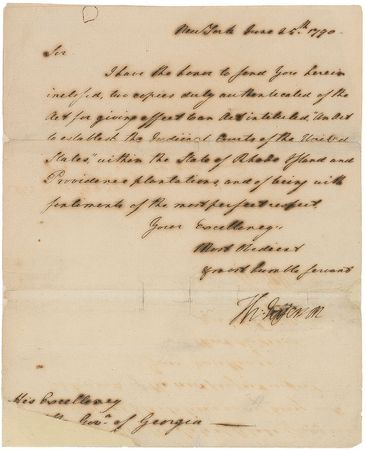 New York June 25th 1790.
Sir
I have the honor to send you herein
inclosed, two copies duly authenticated of the
Act for giving effect to an Act intituled, "An Act
to establish the Judicial Courts of the United
States," within the State of Rhode Island and
Providence plantations, and of being with
sentiments of the most perfect respect
Your Excellency's
Most Obedient
& most humble servant
Th: Jefferson
His Excellency
The Govr. of Georgia